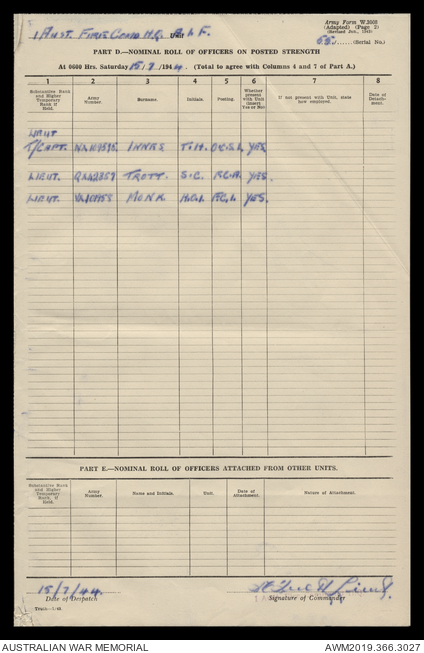 1 Aust. Fires Comd H.Q. A.I.F.
Unit
Army Form W.3008
(Adapted) (Page 2)
(Revised Jan., 1943)
55 ...... (Serial No.)
PART D.—NOMINAL ROLL OF OFFICERS ON POSTED STRENGTH
At 0600 Hrs. Saturday 15/7/1944. (Total to agree with Columns 4 and 7 of Part A.)
1 2 3 4 5 6 7 8
Substantive Rank and Higher Temporary Rank if Held.
Army Number.
Surname.
Initials.
Posting.
Whether present with Unit (Insert Yes or No)
If not present with Unit, state how employed.
Date of Detachment.
LIEUT
T/CAPT. INNES T.H. YES
LIEUT. TROTT. S.C. YES.
LIEUT. MONK YES.
PART E.—NOMINAL ROLL OF OFFICERS ATTACHED FROM OTHER UNITS.
Substantive Rank and Higher Temporary Rank, if Held.
Army Number.
Name and Initials.
Unit.
Date of Attachment.
Nature of Attachment.
15/7/44.
Date of Despatch
Signature of Commander
AUSTRALIAN WAR MEMORIAL
AWM2019.366.3027